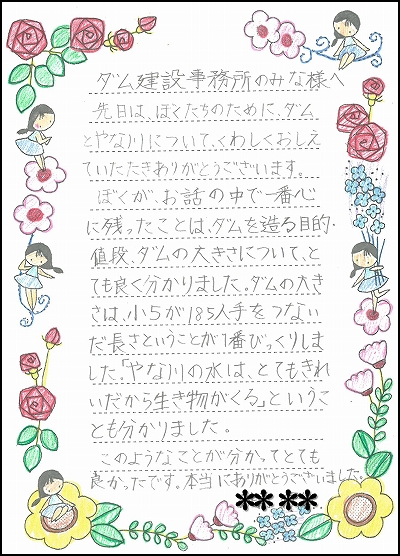 ダム建設事務所のみな様へ
先日は、ぼくたちのために、ダム
とやな川について、くわしくおしえ
ていただきありがとうございます。
ぼくが、お話の中で一番心
に残ったことは、ダムを造る目的・
値段、ダムの大きさについて、と
ても良く分かりました。ダムの大き
さは、小5が185人手をつない
だ長さということが1番びっくりしま
した。「やな川の水は、とてもきれ
いだから生き物がくる」というこ
とも分かりました。
このようなことが分かってとても
良かったです。本当にありがとうございました。